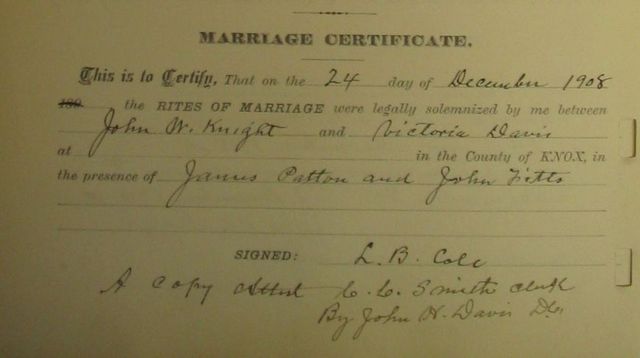 MARRIAGE CERTIFICATE.
This is to Certify, That on the 24 day of December 1908
189 the RITES OF MARRIAGE were legally solemnized by me between
John W. Knight and Victoria Davis
at in the County of KNOX, in
the presence of James Patton and John Fitts
SIGNED: L. B. Cole
A Copy Attest C. C. Smith Clerk
By John W. Davis D.C.